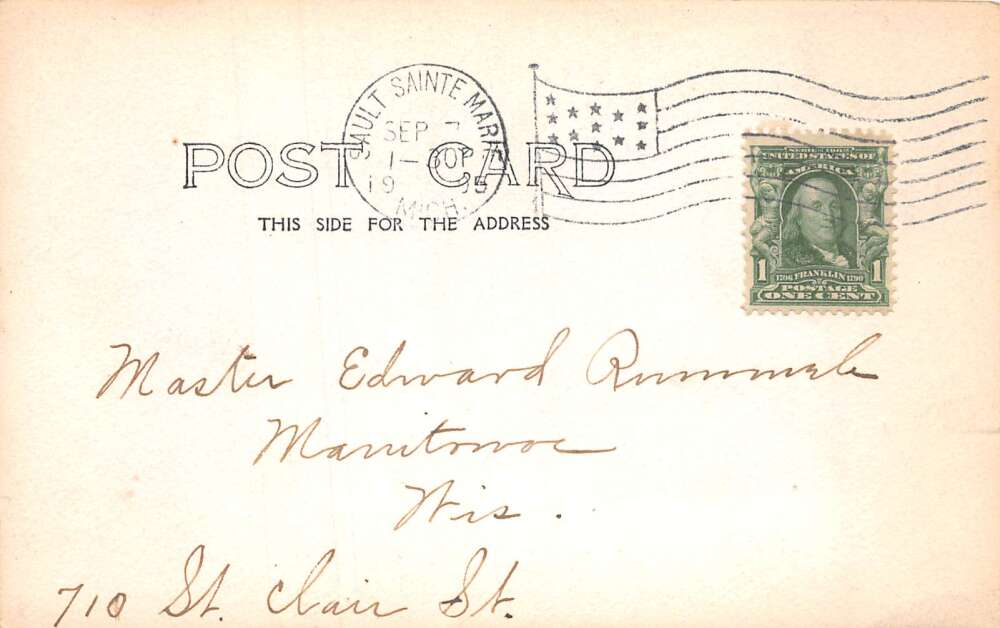 SAULT SAINTE MARIE
SEP 7
1-30P
19 05
MICH.
POST CARD
THIS SIDE FOR THE ADDRESS
SERIES 1902
UNITED STATES OF
AMERICA
1 1706 FRANKLIN 1790 1
POSTAGE
ONE CENT
Master Edward Rummele
Manitowoc
Wis.
710 St. Clair St.